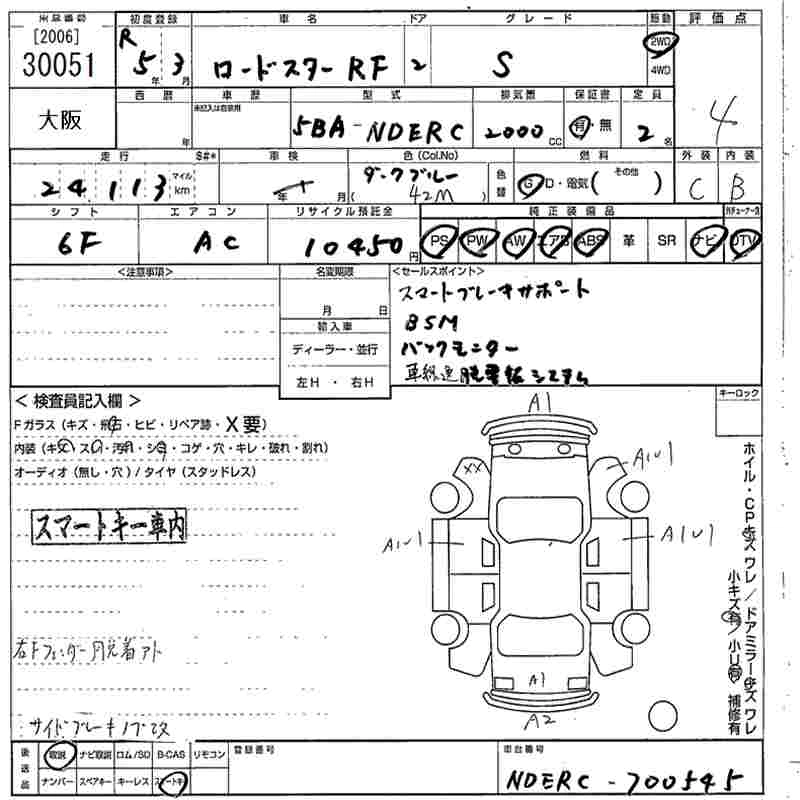 出品番号 初度登録 車名 ドア グレード 駆動 評価点
[2006]
30051
R 5年 3月 ロードスターRF 2 S 2WD 4WD
4
大阪 西暦 年 車歴 未記入は自家用 型式 5BA-NDERC 排気量 2000 cc 保証書 有・無 定員 2名
走行 S#* 車検 色(Col.No) 燃料 外装 内装
24,113 マイル km 年 月 ダークブルー (42M) 色替 G・D・電気 (その他) C B
シフト エアコン リサイクル預託金 純正装備品
6F AC 10450円 PS PW AW エアB ABS 革 SR ナビ DTV
<注意事項> 名変期限 <セールスポイント>
月 日
スマートブレーキサポート
輸入車
BSM
ディーラー・並行
バックモニター
左H・右H
車線逸脱警報システム
キーロック
<検査員記入欄>
Fガラス (キズ・飛石・ヒビ・リペア跡・X要)
内装 (キズ・スレ・汚れ・シミ・コゲ・穴・キレ・破れ・割れ)
オーディオ (無し・穴) / タイヤ (スタッドレス)
スマートキー車内
右Fフェンダー脱着アト
サイドブレーキノブ改
A1
XX
A1U1
A1U1
A1U1
A1
A2
ホイル・CPキズ ワレ / ドアミラーキズ ワレ
小キズ有 / 小U有 補修有
後送品 取説 ナビ取説 ロム/SD B-CAS リモコン 登録番号 車台番号
ナンバー スペアキー キーレス スマートキー NDERC-700545